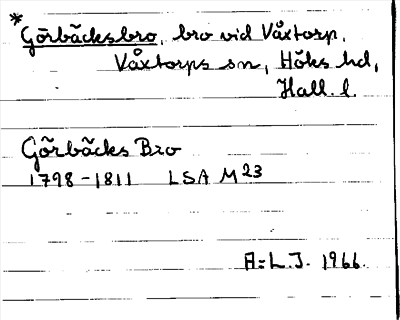 * Görbäcksbro, bro vid Våxtorp,
Våxtorps sn, Höks hd,
Hall. l.
Görbäcks Bro
1798-1811 LSA M23
A:L.J. 1966.